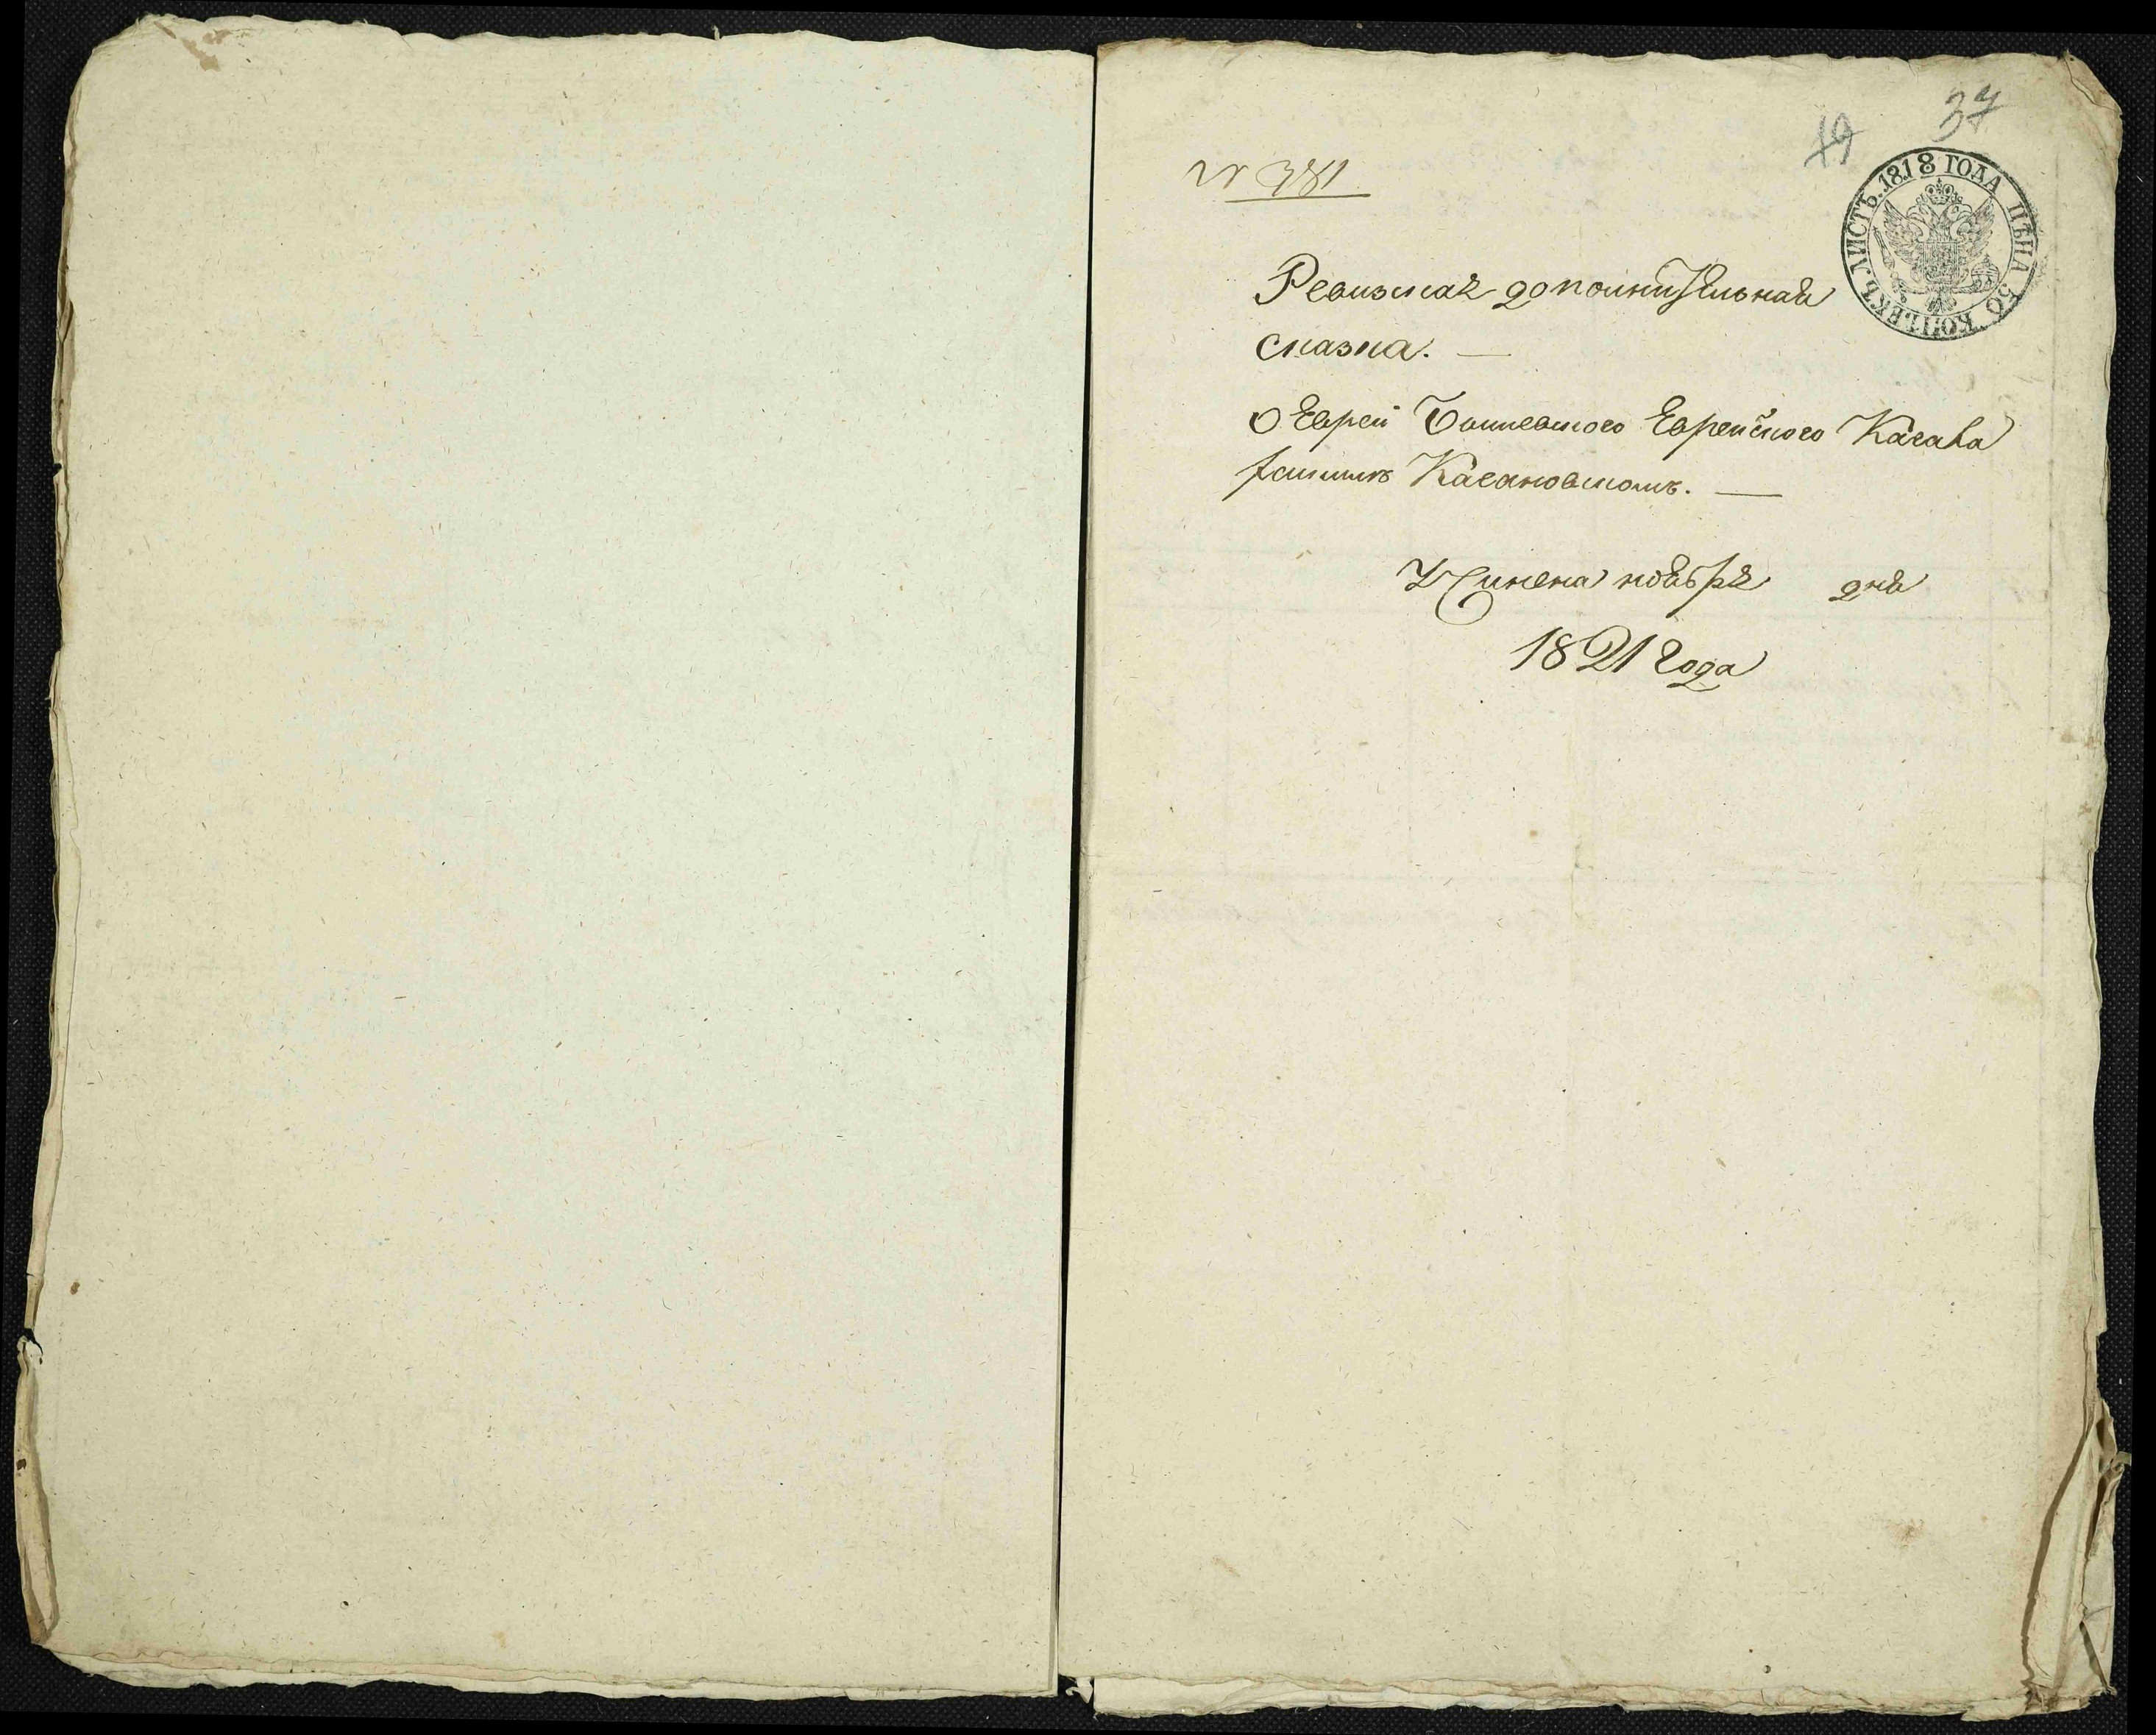 19
37
N 381
ЛИСТЪ. 1818 ГОДА ЦѢНА 50 КОПѢЕКЪ.
Ревизская дополнительная
сказка. —
О Еврей Еврейского Кагала
Кагановскомъ. —
Учинена ноября дня
1821 года